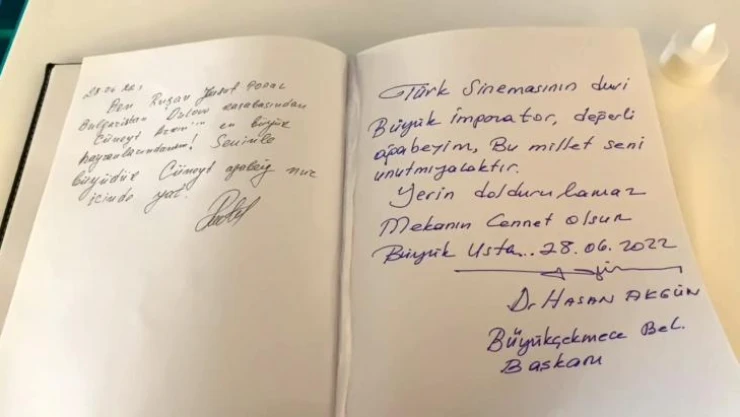 Ben Ruşan Yusuf
Bulgaristan kasabasından
Cüneyt en büyük
hayranlarındanım! Seninle
büyüdük Cüneyt ağabeyi nur
içinde yat.
Türk Sinemasının devi
Büyük İmporator, değerli
ağabeyim, Bu millet seni
unutmıyacaktır.
Yerin doldurulamaz
Mekanın Cennet olsun
Büyük Usta.. 28.06.2022
Dr HASAN AKGÜN
Büyükçekmece Bel.
Başkanı